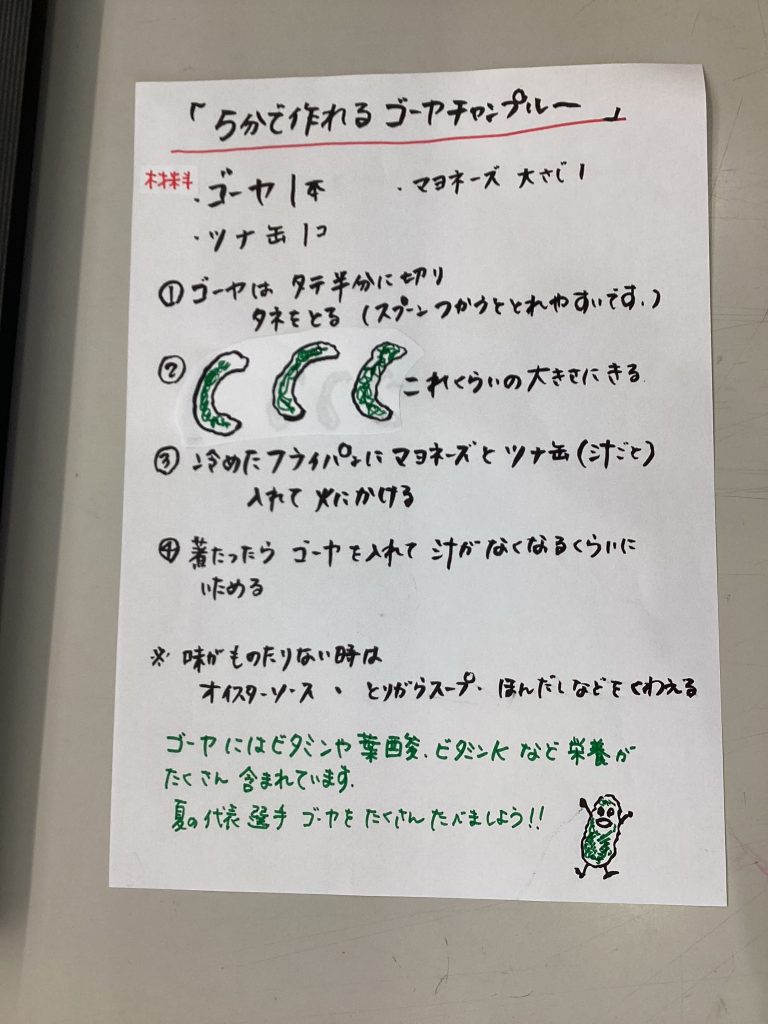 「5分で作れるゴーヤチャンプルー」
材料
・ゴーヤ1本 ・マヨネーズ 大さじ1
・ツナ缶1コ
①ゴーヤは タテ半分に切り
タネをとる (スプーンつかうととれやすいです。)
② これくらいの大きさにきる
③冷めたフライパンにマヨネーズとツナ缶(汁ごと)
入れて火にかける
④煮たったらゴーヤを入れて汁がなくなるくらいに
いためる
※味がものたりない時は
オイスターソース・とりがらスープ・ほんだしなどをくわえる
ゴーヤにはビタミンや葉酸、ビタミンKなど栄養が
たくさん含まれています。
夏の代表選手 ゴーヤをたくさんたべましょう!!